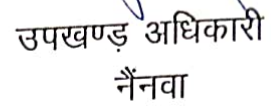 उपखण्ड़ अधिकारी
नैंनवा